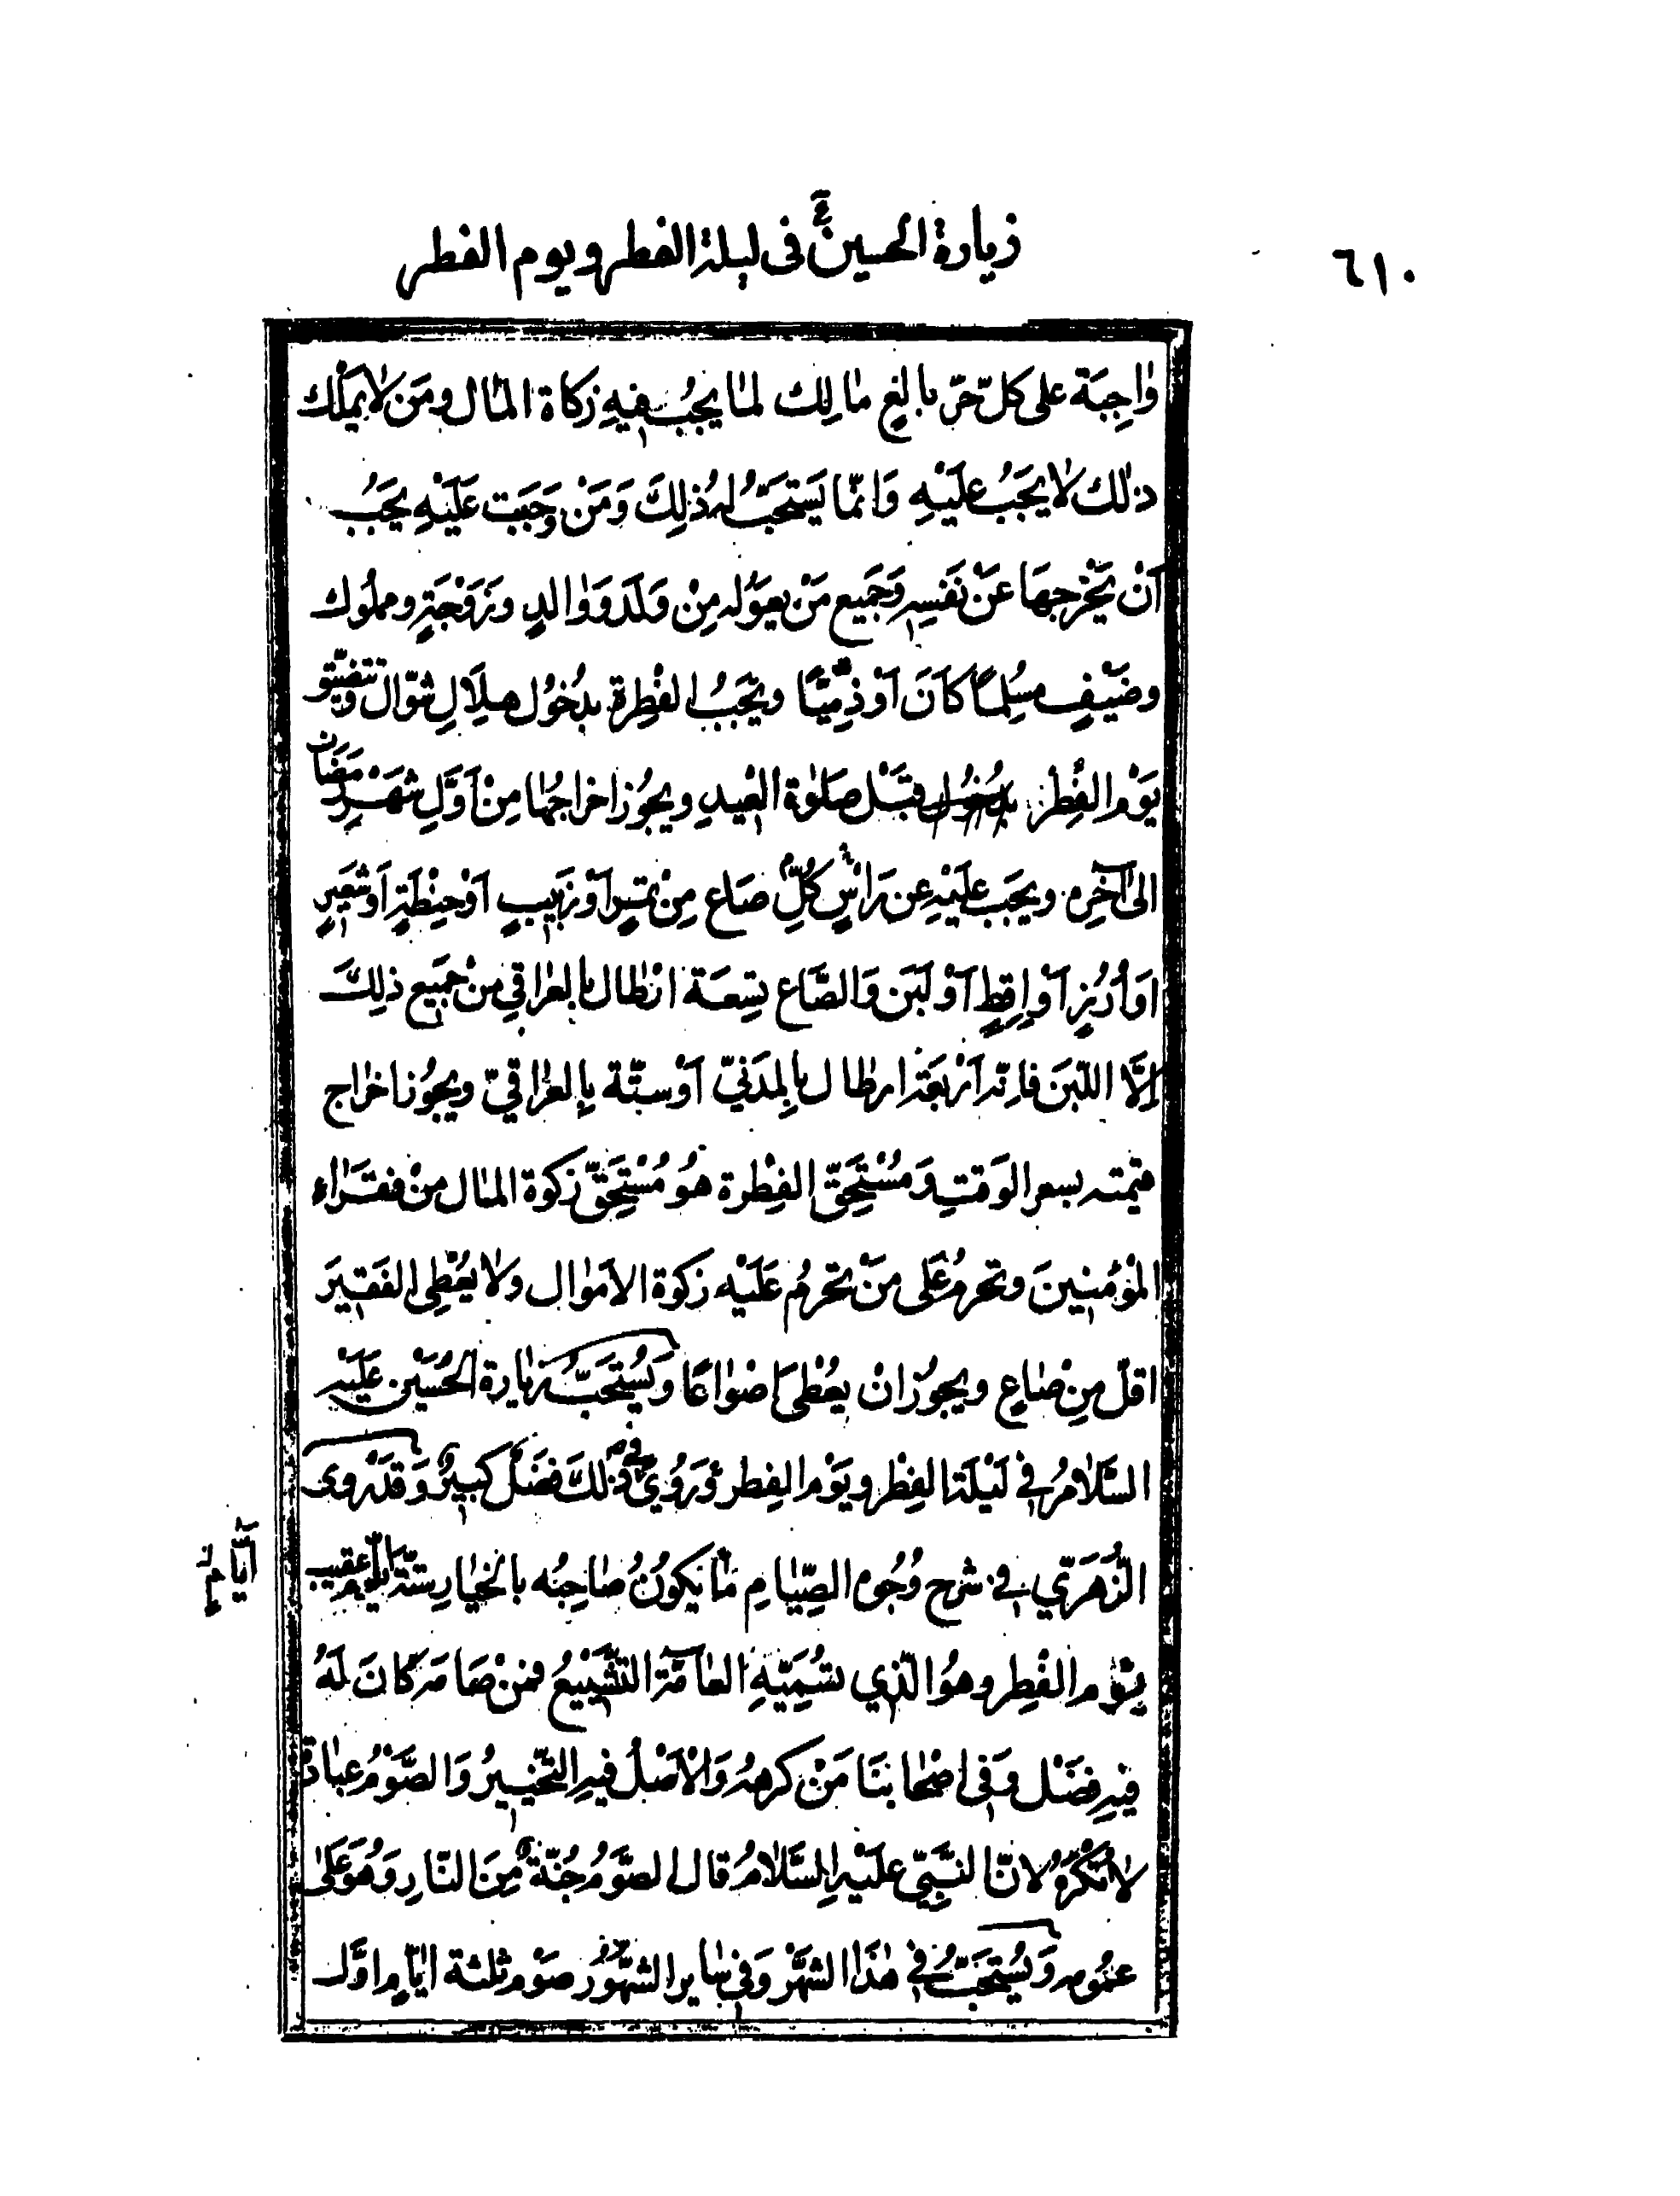 ٦١٠
زيارة الحسين ع في ليلة الفطر ويوم الفطر
وٰاجِبَة على كلّ حرّ بالِغٍ مٰا لِك لمٰا يجِبُ فيهِ زكاة المٰال ومَن لاٰ يَملك
ذٰلك لاٰ يجَبُ علَيْهِ وَانمّا يَستحَبّ لهُ ذٰلِكَ وَمَنْ وَجَبَت عَلَيْهِ يجَبُ
اَنْ يَخْرجهَا عَنْ نَفسِهِ وَجَميع مَنْ يعوُله مِنْ وَلَدَ وَوٰالدٍ وزَوْجَةٍ ومملُوك
وضَيْفٍ مسُلِمًا كاَنَ اَوْ ذِمّيًّا ويَجَبُ الفْطِرة بدُخُول هلِاَلِ شوّال وتتضيّق
يَوْم الفْطِرْ قبَْل صَلوٰة العْيدِ ويجوُز اخراجُهٰا مِنْ اَوَّلِ شَهْرِ رَمَضَان
الىٰ آخِره ويجَبَ علَيْهِ عن رَاسٍ كُلِّ صَاع مِنْ تمَرٍ اَوْ زَبيبٍ اَوْ حِنْطَةٍ اَوْ شَعَيرٍ
اوَ أرُزٍ اَوْ اِقِطٍ اَوْ لَبَن وَالصَّاع تسِعَة ارْطال بالعرٰاقي منْ جمَيع ذٰلِكَ
اِلَّا اللّبَن فانّه اَرْبَعَة ارطال بالِمدَنيّ اَوْ ستّة بالعرٰاقيّ ويجوُز اخراج
قيمته بسعر الوَقتِ وَمُسْتحَقّ الفِطْرة هُو مُسْتحِقّ زكوة المٰال منْ فقَرٰاء
المْؤُمنينَ وتحرمُ عَلى مَنْ تحَرمُ عَلَيْه زكوة الاَموٰال ولاٰ يعُطِى الفَقيرَ
اقلّ مِنْ صٰاعٍ ويجوُز انْ يعُطى اَضوٰاعًا وَيَسُتحَبّ زيٰارة الحُسَيْن عَلَيْه
السَّلاٰمُ في لَيْلَة الفِطْر ويَوْم الفِطر وَرُوِيَ في ذٰلكَ فضَلْ كبيرٌ وَقَدْ روى
الزُّهَريّ في شرح وُجُوه الصِّيٰامِ مٰا يكوُنُ صٰاحِبُه بالخيٰارِ ستّة ايّام عقيب
أيّام
يَوْم الفْطِر وهُو الّذي تسُمِيّهِ العٰامَّة التشْييعُ فمن صٰامَه كانَ لَهُ
فيهِ فضَلْ وَفى اصْحٰابنَا مَنْ كرهه وَالْاَصْلُ فيهِ التخّييرُ وَالصَّوْمُ عبٰادة
لاٰ تُكْرهُ لانّ النبَّيّ علَيْهِ السَّلاٰمُ قالَ الصَّوَمُ جُنّة مِنَ النّارِ وَهُوَ عَلىٰ
عمُومه وَيسُتحَبّ في هٰذَا الشهَّرْ وَفي سٰاير الشهّوُر صَوْم ثلثة ايّٰامٍ اوَّل